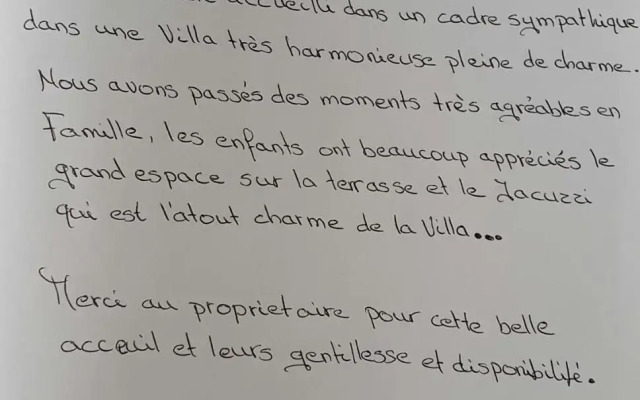 accueilli dans un cadre sympathique
dans une Villa très harmonieuse pleine de charme.
Nous avons passés des moments très agréables en
Famille, les enfants ont beaucoup appréciés le
grand espace sur la terrasse et le Jacuzzi
qui est l'atout charme de la Villa...
Merci au proprietaire pour cette belle
acceuil et leurs gentillesse et disponibilité.